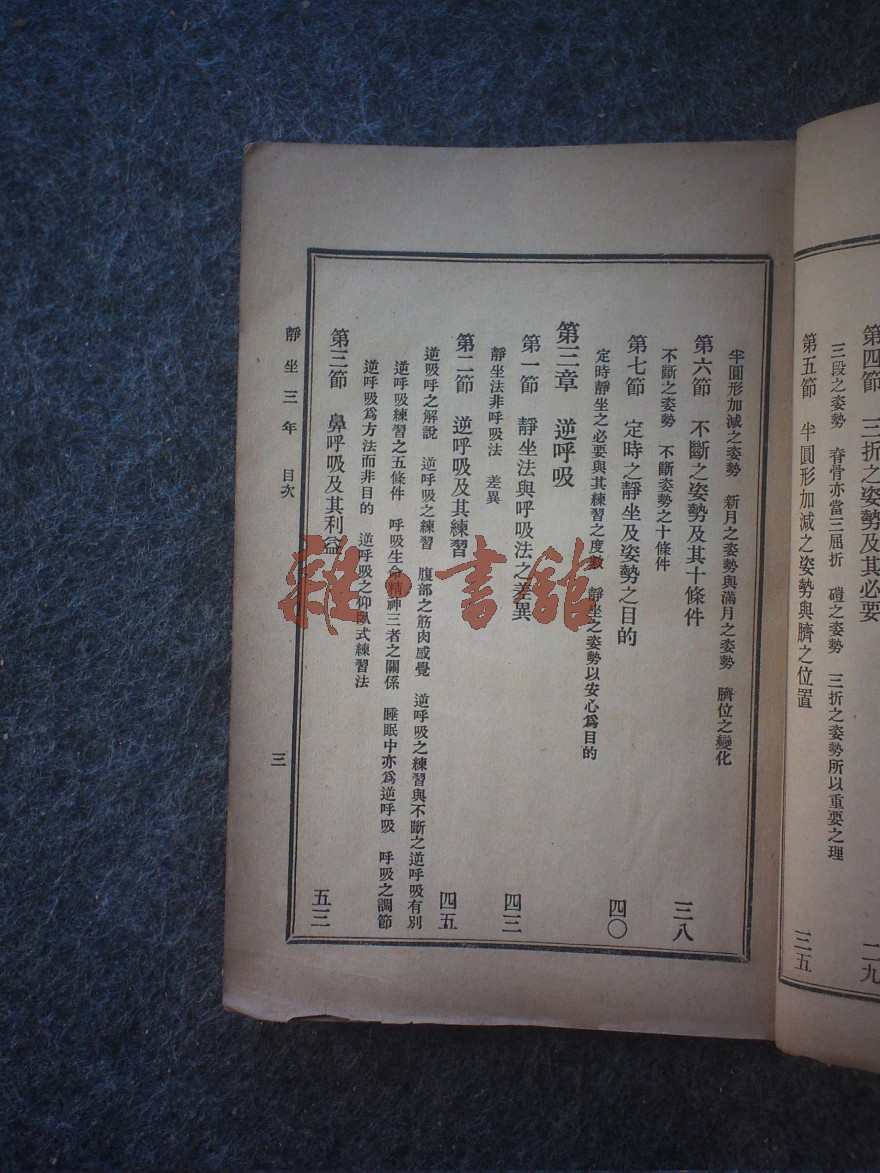 第四節　三折之姿勢及其必要　二九
三段之姿勢　脊骨亦當三屈折　磴之姿勢　三折之姿勢所以重要之理
第五節　半圓形加減之姿勢與臍之位置　三五
半圓形加減之姿勢　新月之姿勢與滿月之姿勢　臍位之變化
第六節　不斷之姿勢及其十條件　三八
不斷之姿勢　不斷姿勢之十條件
第七節　定時之靜坐及姿勢之目的　四〇
定時靜坐之必要與其練習之度數　靜坐之姿勢以安心爲目的
第三章　逆呼吸
第一節　靜坐法與呼吸法之差異　四三
靜坐法非呼吸法　差異
第二節　逆呼吸及其練習　四五
逆吸呼之解說　逆呼吸之練習　腹部之筋肉感覺　逆呼吸之練習與不斷之逆呼吸有別
逆呼吸練習之五條件　呼吸生命精神三者之關係　睡眠中亦爲逆呼吸　呼吸之調節
逆呼吸爲方法而非目的　逆呼吸之仰臥式練習法
第三節　鼻呼吸及其利益　五三
靜坐三年　目次　三
雜·書館